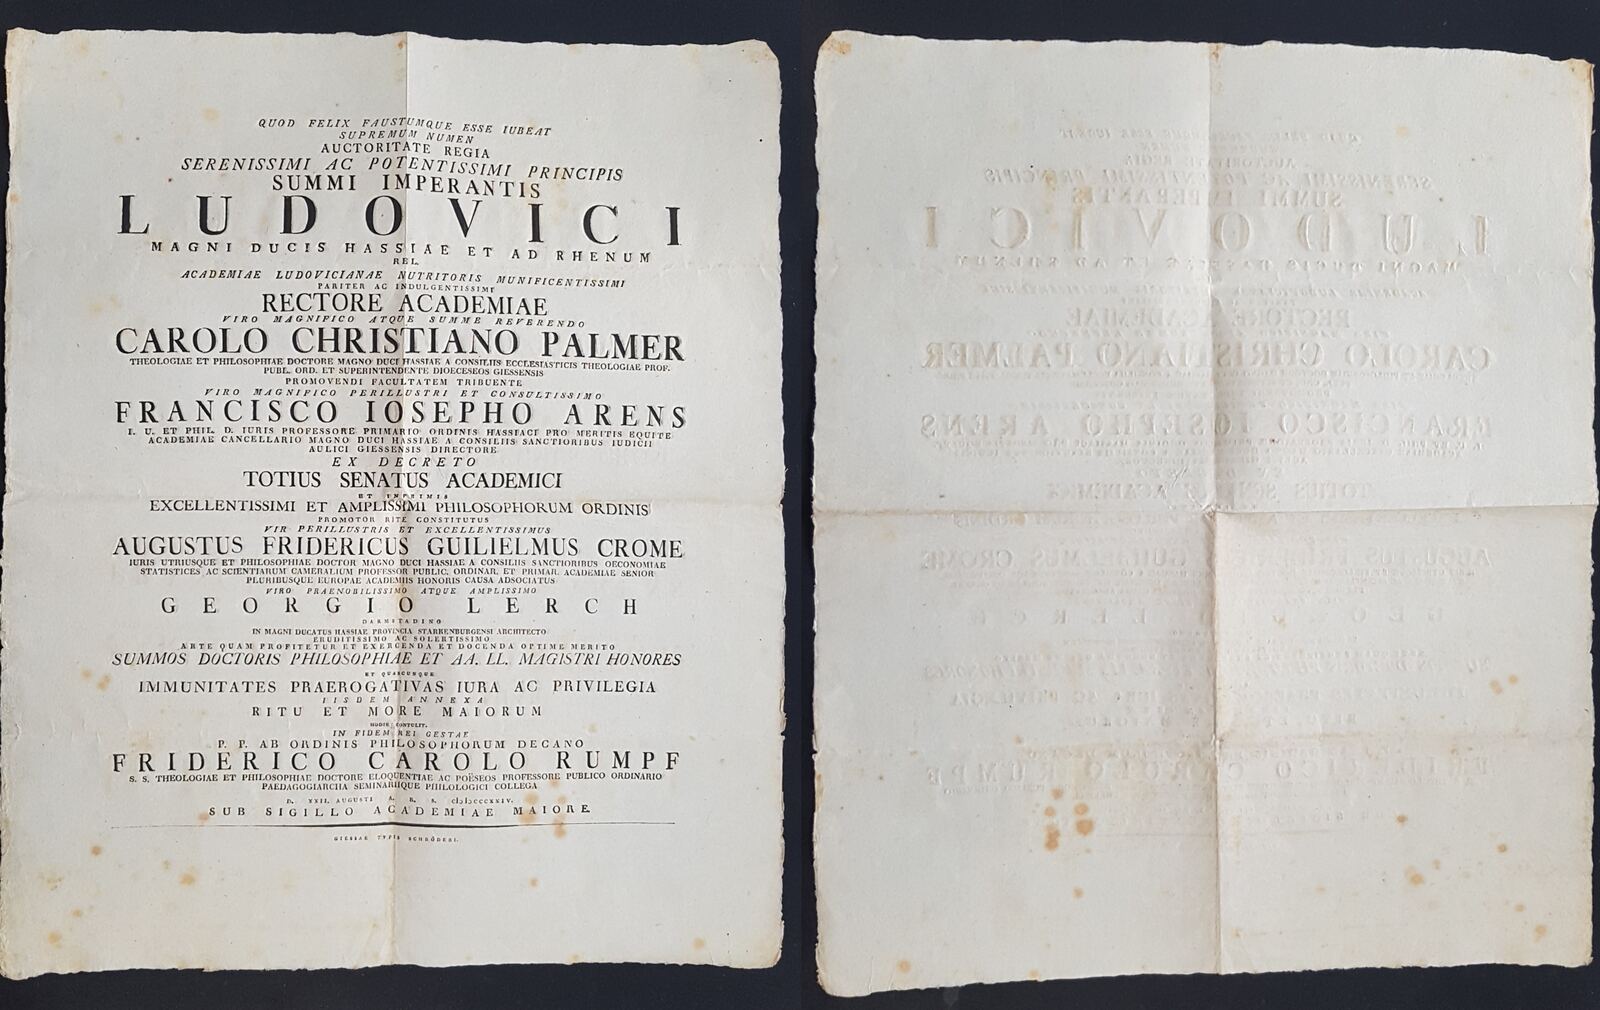 QUOD FELIX FAUSTUMQUE ESSE IUBEAT
SUPREMUM NUMEN
AUCTORITATE REGIA
SERENISSIMI AC POTENTISSIMI PRINCIPIS
SUMMI IMPERANTIS
LUDOVICI
MAGNI DUCIS HASSIAE ET AD RHENUM
REL.
ACADEMIAE LUDOVICIANAE NUTRITORIS MUNIFICENTISSIMI
PARITER AC INDULGENTISSIMI
RECTORE ACADEMIAE
VIRO MAGNIFICO ATQUE SUMME REVERENDO
CAROLO CHRISTIANO PALMER
THEOLOGIAE ET PHILOSOPHIAE DOCTORE MAGNO DUCI HASSIAE A CONSILIIS ECCLESIASTICIS THEOLOGIAE PROF.
PUBL. ORD. ET SUPERINTENDENTE DIOECESEOS GIESSENSIS
PROMOVENDI FACULTATEM TRIBUENTE
VIRO MAGNIFICO PERILLUSTRI ET CONSULTISSIMO
FRANCISCO IOSEPHO ARENS
I. U. ET PHIL. D. IURIS PROFESSORE PRIMARIO ORDINIS HASSIACI PRO MERITIS EQUITE
ACADEMIAE CANCELLARIO MAGNO DUCI HASSIAE A CONSILIIS SANCTIORIBUS IUDICII
AULICI GIESSENSIS DIRECTORE
EX DECRETO
TOTIUS SENATUS ACADEMICI
ET INPRIMIS
EXCELLENTISSIMI ET AMPLISSIMI PHILOSOPHORUM ORDINIS
PROMOTOR RITE CONSTITUTUS
VIR PERILLUSTRIS ET EXCELLENTISSIMUS
AUGUSTUS FRIDERICUS GUILIELMUS CROME
IURIS UTRIUSQUE ET PHILOSOPHIAE DOCTOR MAGNO DUCI HASSIAE A CONSILIIS SANCTIORIBUS OECONOMIAE
STATISTICES AC SCIENTIARUM CAMERALIUM PROFESSOR PUBLIC. ORDINAR. ET PRIMAR. ACADEMIAE SENIOR
PLURIBUSQUE EUROPAE ACADEMIIS HONORIS CAUSA ADSOCIATUS
VIRO PRAENOBILISSIMO ATQUE AMPLISSIMO
GEORGIO LERCH
DARMSTADINO
IN MAGNI DUCATUS HASSIAE PROVINCIA STARKENBURGENSI ARCHITECTO
ERUDITISSIMO AC SOLERTISSIMO
ARTE QUAM PROFITETUR ET EXERCENDA ET DOCENDA OPTIME MERITO
SUMMOS DOCTORIS PHILOSOPHIAE ET AA. LL. MAGISTRI HONORES
ET QUAECUNQUE
IMMUNITATES PRAEROGATIVAS IURA AC PRIVILEGIA
IISDEM ANNEXA
RITU ET MORE MAIORUM
HODIE CONTULIT.
IN FIDEM REI GESTAE
P. P. AB ORDINIS PHILOSOPHORUM DECANO
FRIDERICO CAROLO RUMPF
S. S. THEOLOGIAE ET PHILOSOPHIAE DOCTORE ELOQUENTIAE AC POËSEOS PROFESSORE PUBLICO ORDINARIO
PAEDAGOGIARCHA SEMINARIIQUE PHILOLOGICI COLLEGA
D. XXII. AUGUSTI A. R. S. cIɔIɔCCCXXIV.
SUB SIGILLO ACADEMIAE MAIORE.
GIESSAE TYPIS SCHRÖDERI.